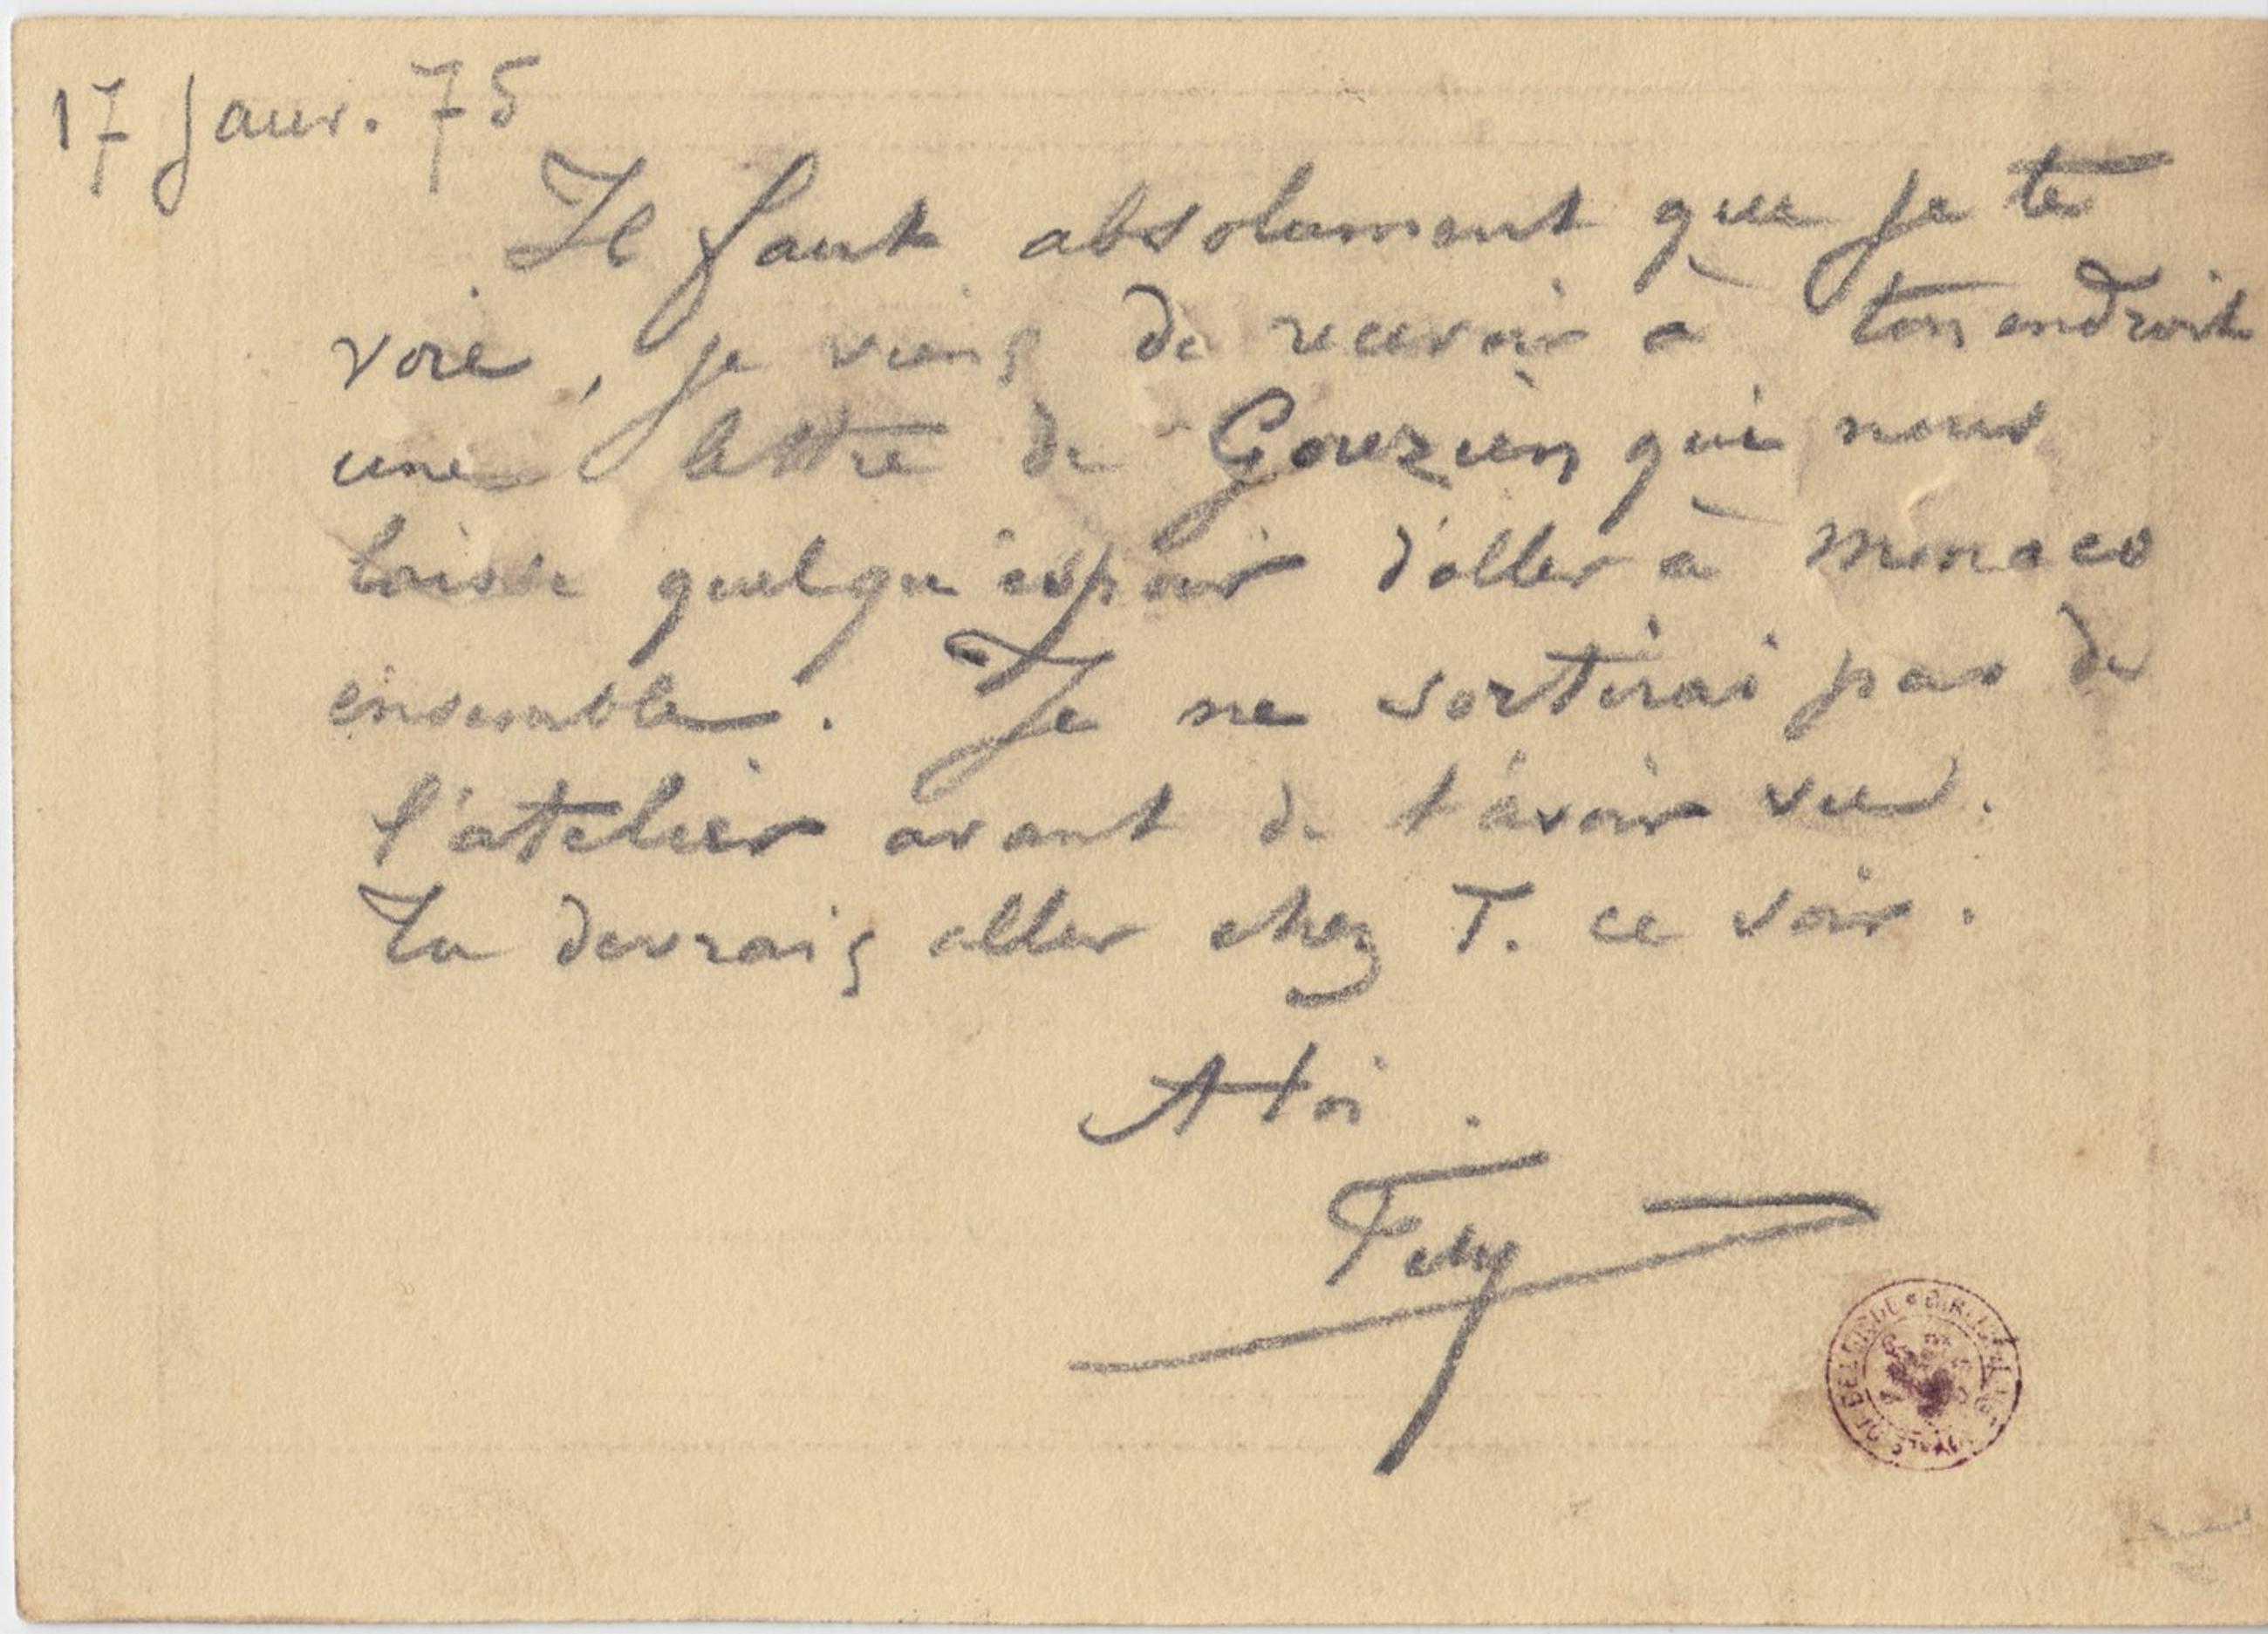 17 Janv. 75
Il faut absolument que je te
voie, je viens de recevoir à ton endroit
une lettre de Gouzien qui nous
laisse quelqu'espoir d'aller à Monaco
ensemble. Je ne sortirai pas de
l'atelier avant de t'avoir vu.
Tu devrais aller chez T. ce soir.
A toi.
Fély